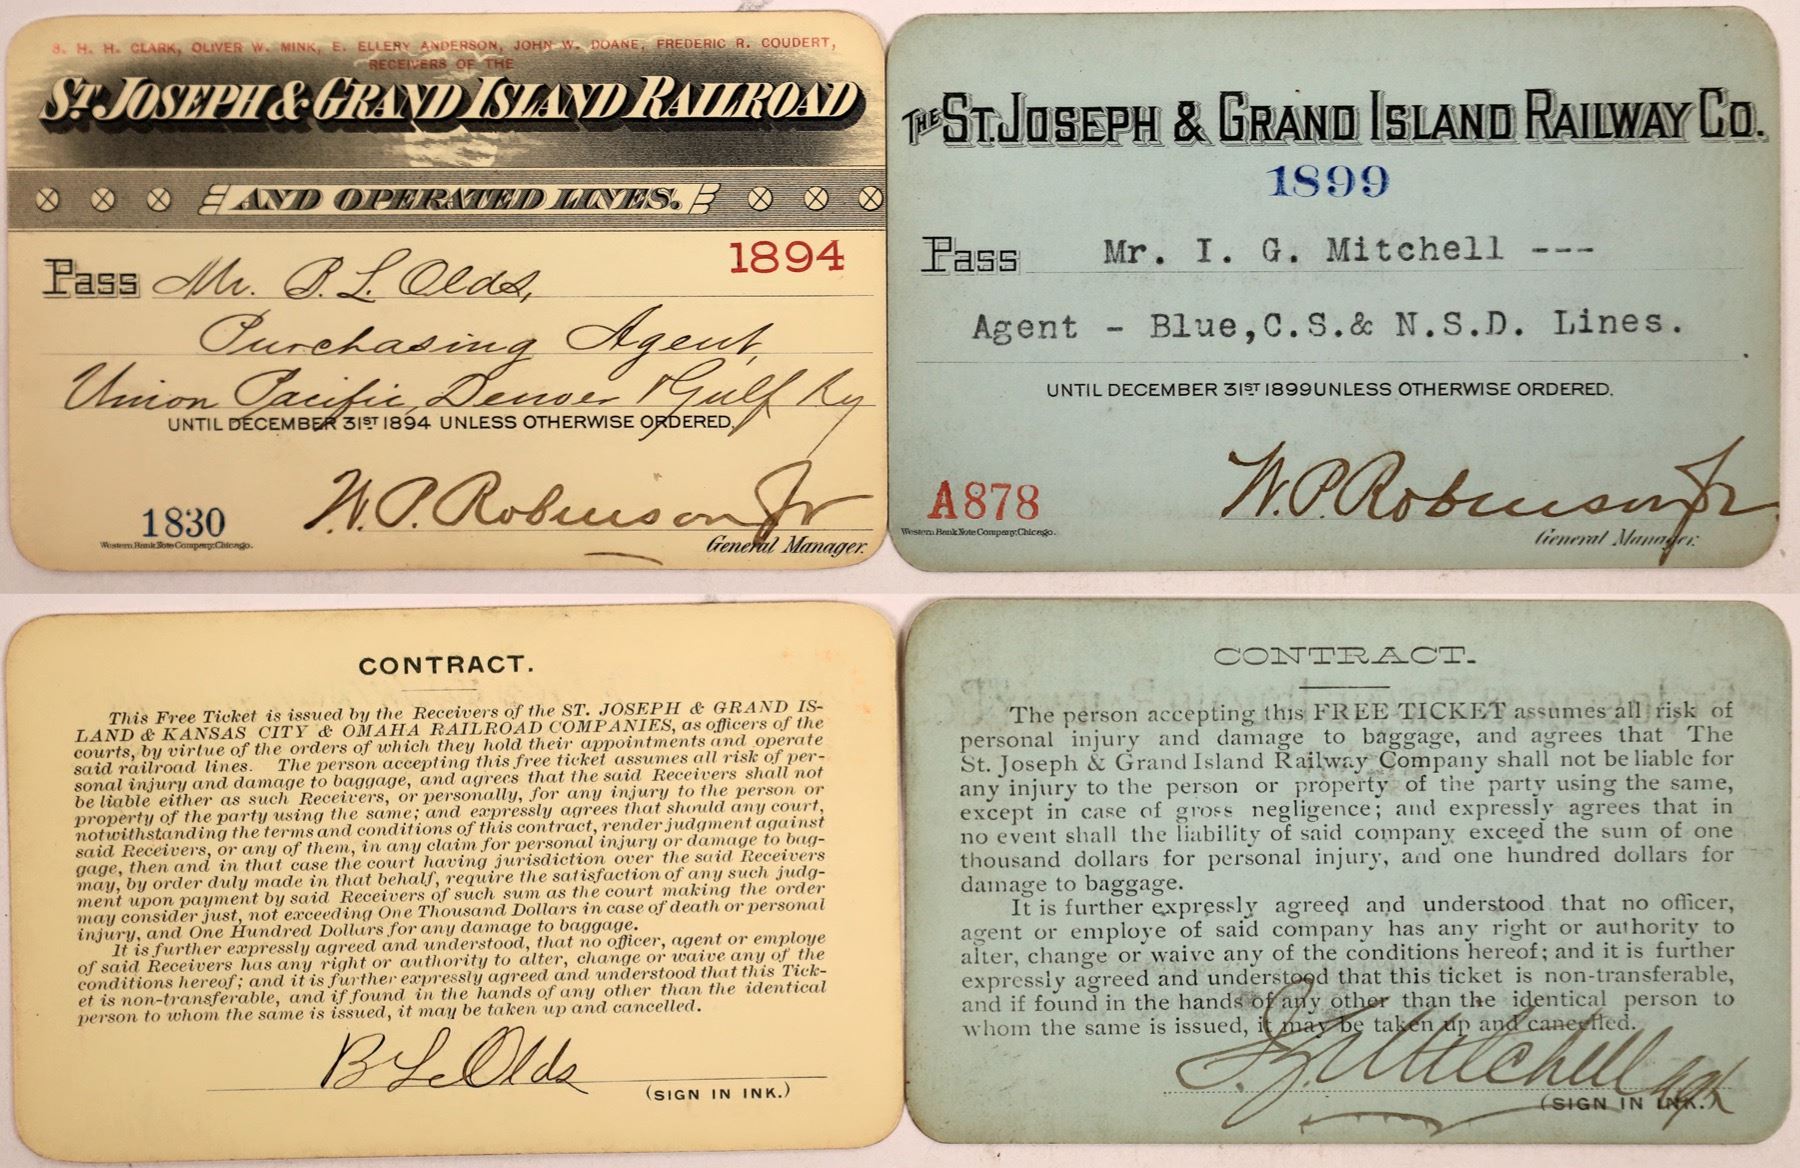 S. H. H. CLARK, OLIVER W. MINK, E. ELLERY ANDERSON, JOHN W. DOANE, FREDERIC R. COUDERT,
RECEIVERS OF THE
ST. JOSEPH & GRAND ISLAND RAILROAD
AND OPERATED LINES.
1894
Pass Mr. B. L. Olds,
Purchasing Agent,
Union Pacific, Denver & Gulf Ry
UNTIL DECEMBER 31ST 1894 UNLESS OTHERWISE ORDERED.
W. P. Robinson Jr
1830
Western Bank Note Company, Chicago.
General Manager.
THE ST. JOSEPH & GRAND ISLAND RAILWAY CO.
1899
Pass Mr. I. G. Mitchell ---
Agent - Blue, C.S.& N.S.D. Lines.
UNTIL DECEMBER 31ST 1899 UNLESS OTHERWISE ORDERED.
W. P. Robinson Jr
A878
Western Bank Note Company, Chicago.
General Manager.
CONTRACT.
This Free Ticket is issued by the Receivers of the ST. JOSEPH & GRAND IS-
LAND & KANSAS CITY & OMAHA RAILROAD COMPANIES, as officers of the
courts, by virtue of the orders of which they hold their appointments and operate
said railroad lines. The person accepting this free ticket assumes all risk of per-
sonal injury and damage to baggage, and agrees that the said Receivers shall not
be liable either as such Receivers, or personally, for any injury to the person or
property of the party using the same; and expressly agrees that should any court,
notwithstanding the terms and conditions of this contract, render judgment against
said Receivers, or any of them, in any claim for personal injury or damage to bag-
gage, then and in that case the court having jurisdiction over the said Receivers
may, by order duly made in that behalf, require the satisfaction of any such judg-
ment upon payment by said Receivers of such sum as the court making the order
may consider just, not exceeding One Thousand Dollars in case of death or personal
injury, and One Hundred Dollars for any damage to baggage.
It is further expressly agreed and understood, that no officer, agent or employe
of said Receivers has any right or authority to alter, change or waive any of the
conditions hereof; and it is further expressly agreed and understood that this Tick-
et is non-transferable, and if found in the hands of any other than the identical
person to whom the same is issued, it may be taken up and cancelled.
B L Olds
(SIGN IN INK.)
CONTRACT.
The person accepting this FREE TICKET assumes all risk of
personal injury and damage to baggage, and agrees that The
St. Joseph & Grand Island Railway Company shall not be liable for
any injury to the person or property of the party using the same,
except in case of gross negligence; and expressly agrees that in
no event shall the liability of said company exceed the sum of one
thousand dollars for personal injury, and one hundred dollars for
damage to baggage.
It is further expressly agreed and understood that no officer,
agent or employe of said company has any right or authority to
alter, change or waive any of the conditions hereof; and it is further
expressly agreed and understood that this ticket is non-transferable,
and if found in the hands of any other than the identical person to
whom the same is issued, it may be taken up and cancelled.
I. G. Mitchell Agt
(SIGN IN INK.)